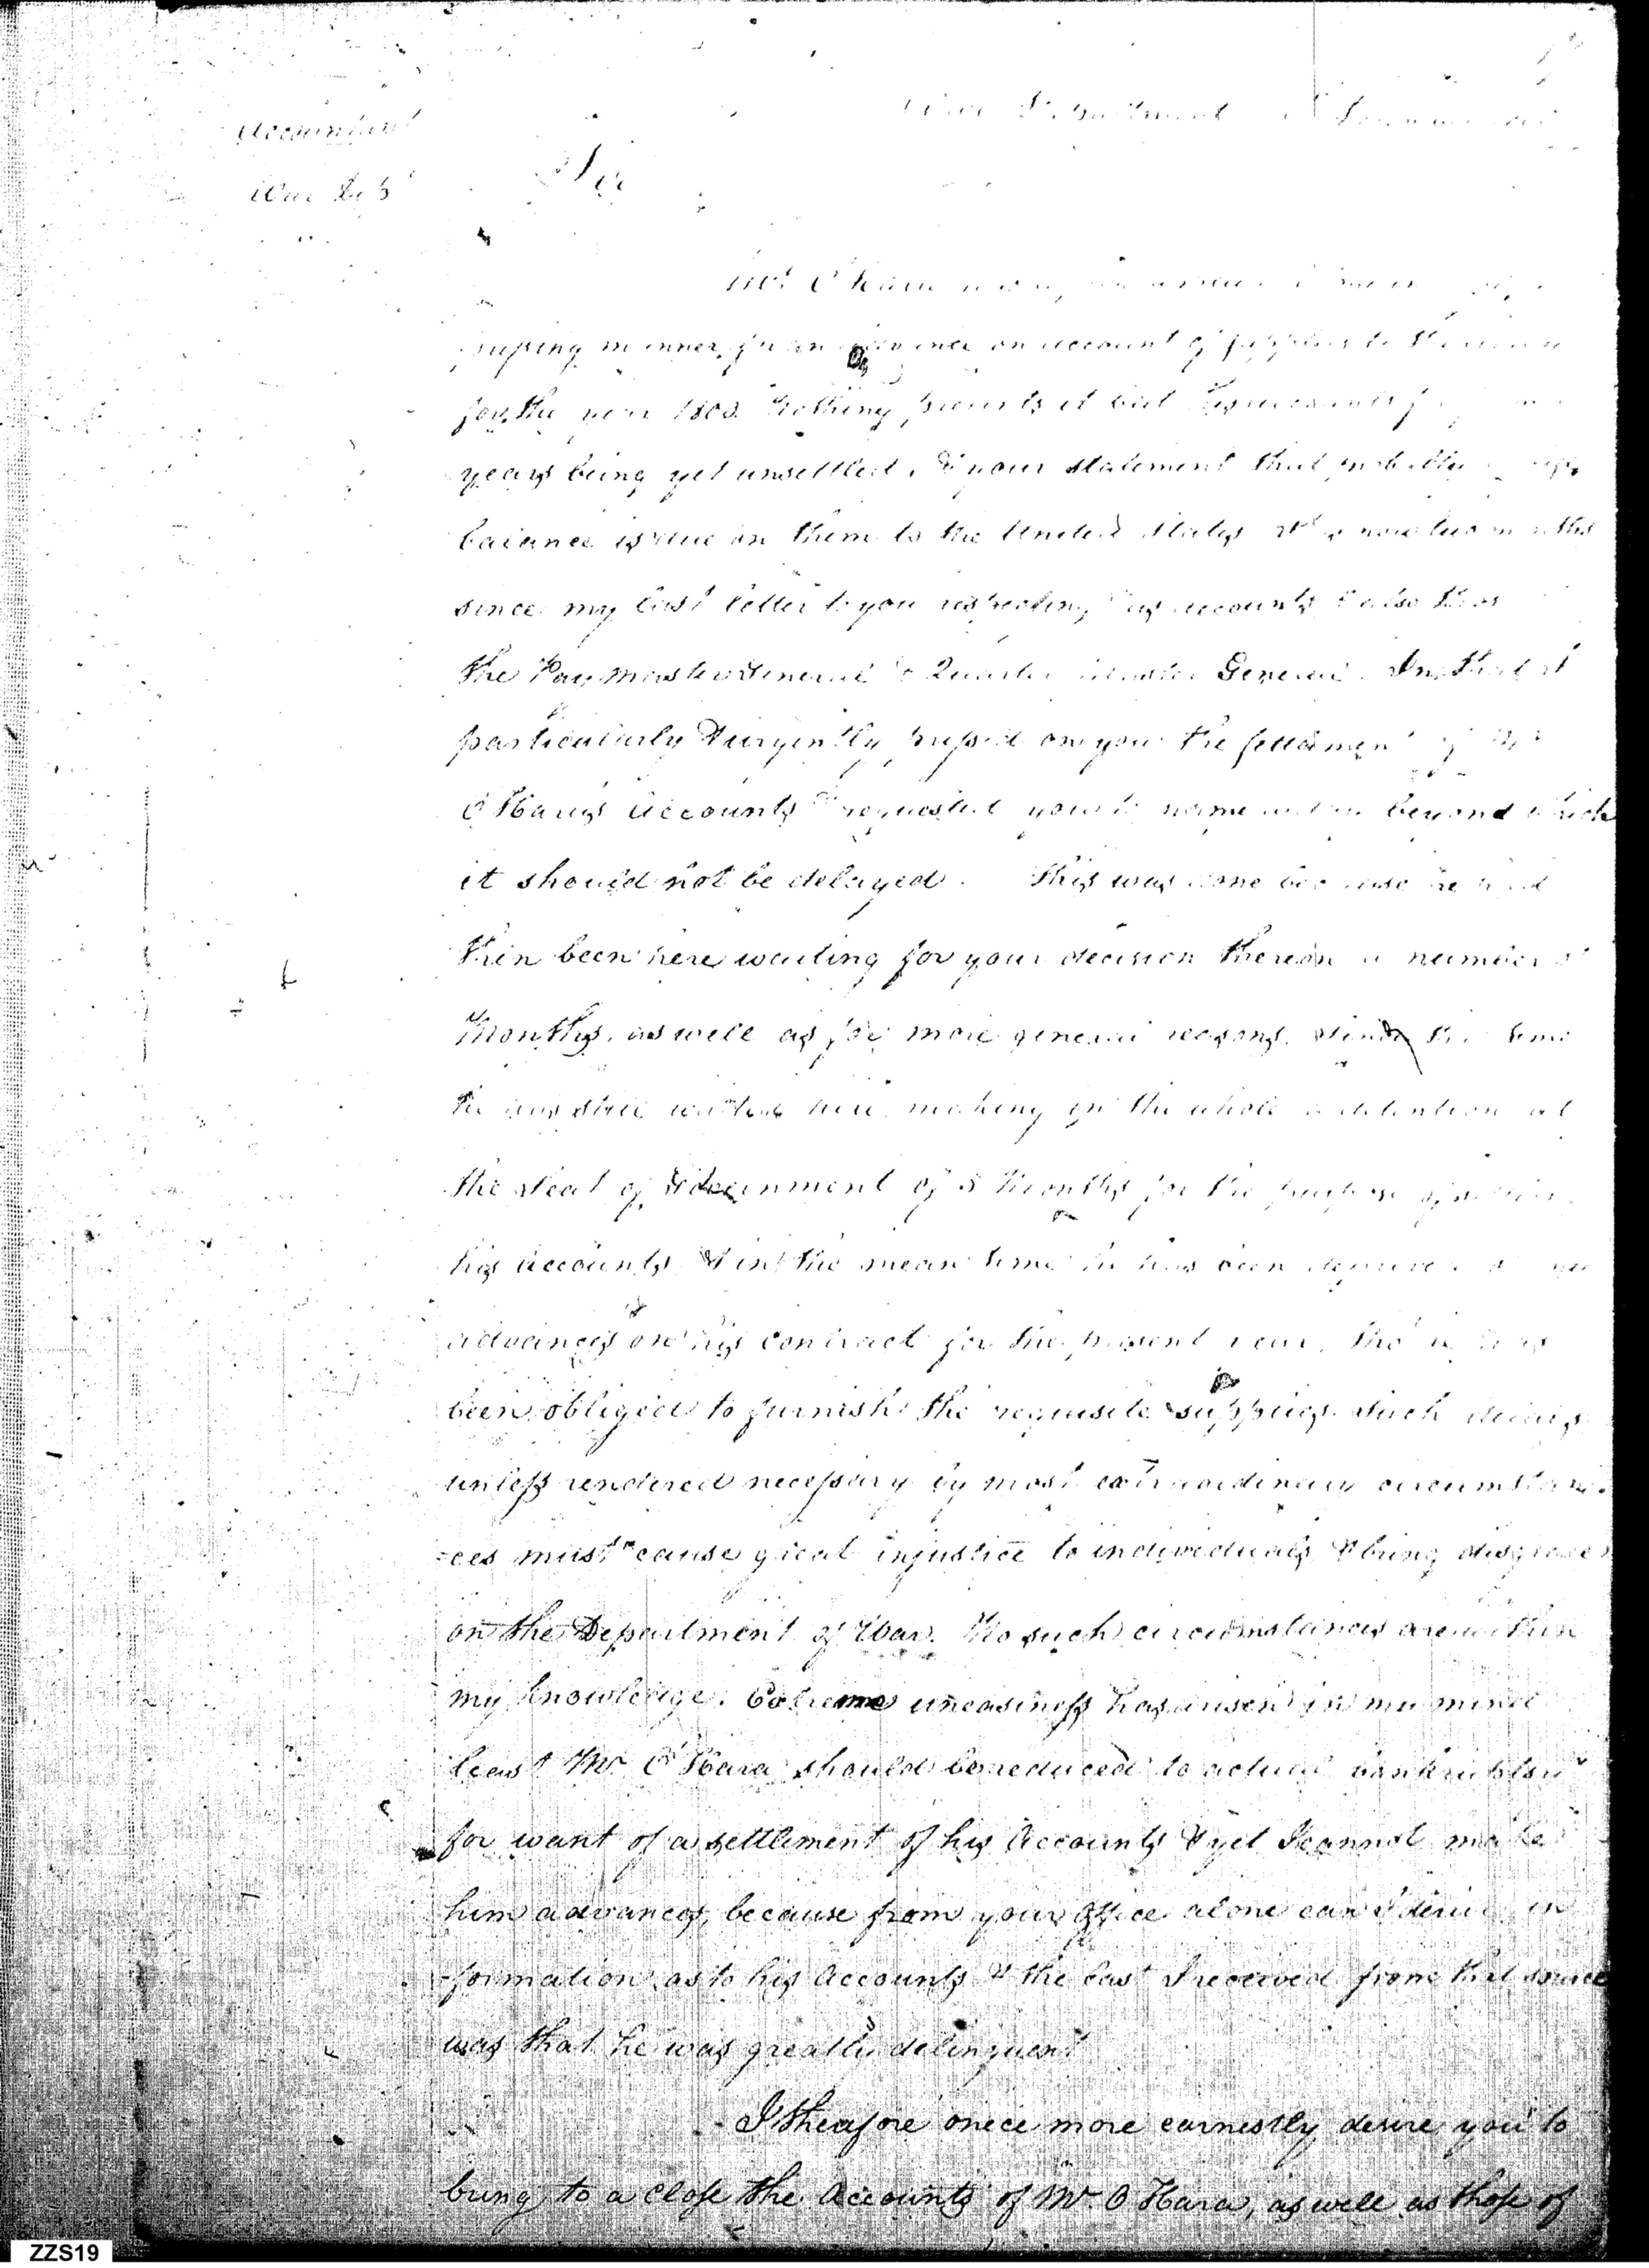 Accountant
War Dept
War Department
Sir
Mr O Hara
pressing manner for an advance on account of supplies to the
for the year 1803. Nothing prevents it but his accounts for
years being yet unsettled, & your statement that probably a
balance is due on them to the United States. It is now two months
since my last letter to you respecting his accounts & also those
The Paymaster General & Quarter Master General. In that I
particularly & urgently pressed on you the settlement of Mr
O Hara's Accounts & requested you to name beyond which
it should not be delayed. This was done because he had
then been here waiting for your decision thereon a number of
Months, as well as for more general reasons. Since the time
he has still waited here making in the whole a detention at
the seat of Government of 8 Months for the purpose of
his Accounts & in the mean time he has been
advances on his contract for the present year, tho' he has
been obliged to furnish the requisite supplies. Such delays
unless rendered necessary by most extraordinary circumstan-
-ces must cause great injustice to individuals & bring disgrace
on the Department of War. No such circumstances are within
my knowledge. Extreme uneasiness has arisen in my mind
least Mr O Hara should be reduced to actual bankruptcy
for want of a settlement of his Accounts & yet I cannot make
him advances, because from your office alone can I derive in
-formation as to his Accounts & the last I received from that source
was that he was greatly delinquent
I therefore onece more earnestly desire you to
bring to a close the Accounts of Mr O Hara, as well as those of
ZZS19